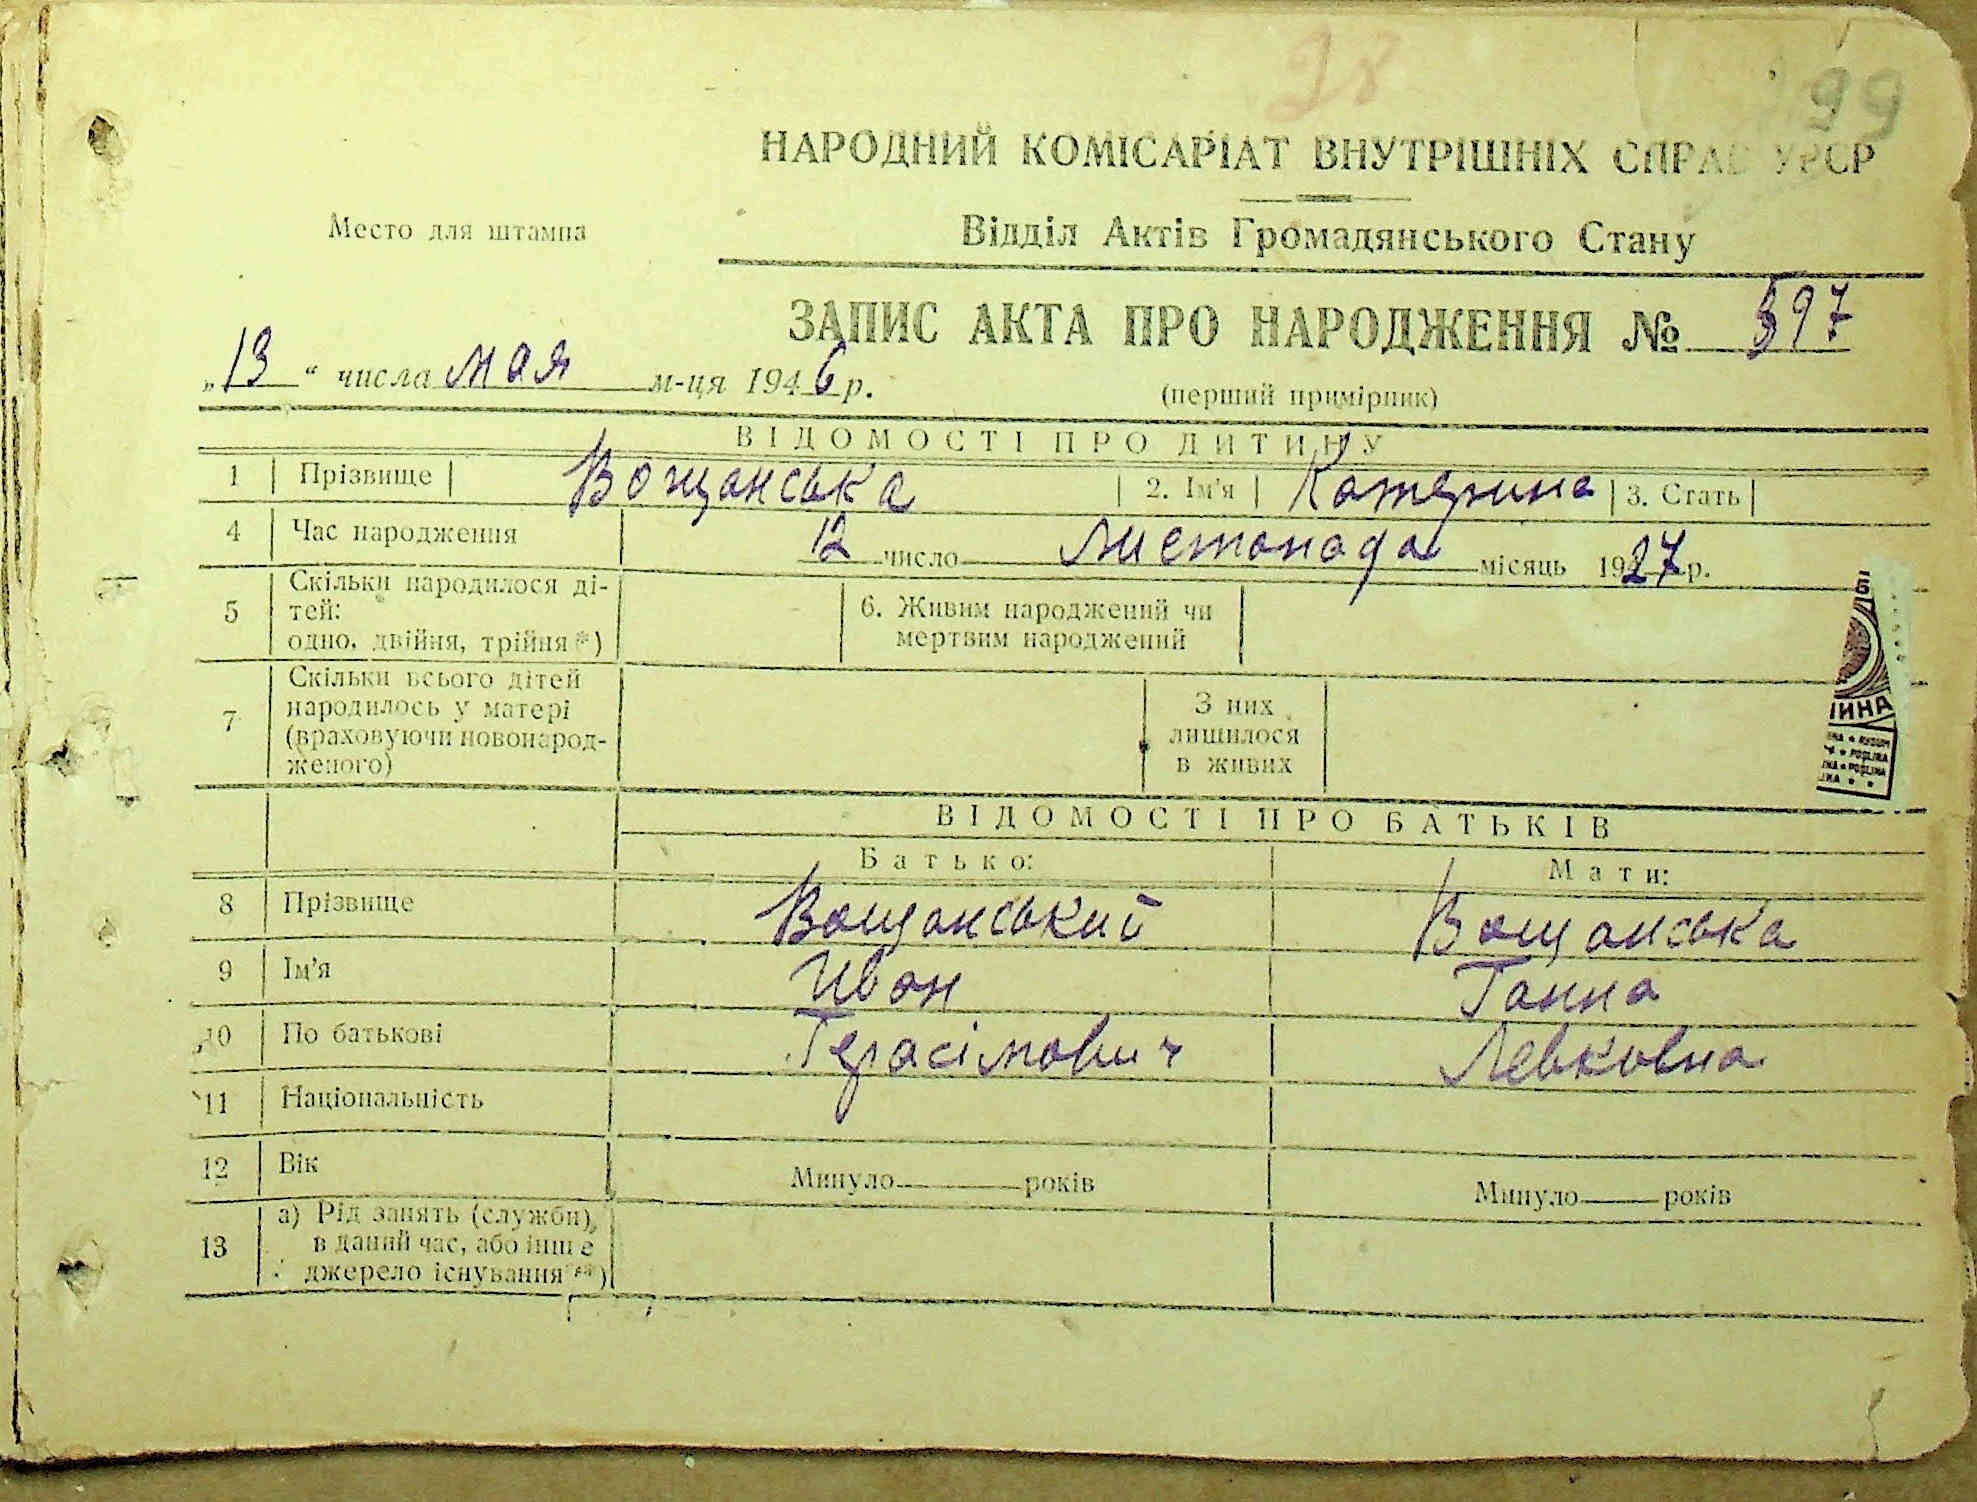 28
99
НАРОДНИЙ КОМІСАРІАТ ВНУТРІШНІХ СПРАВ УРСР
Место для штампа
Відділ Актів Громадянського Стану
ЗАПИС АКТА ПРО НАРОДЖЕННЯ № 597
„13“ числа мая м-ця 1946 р.
(перший примірник)
ВІДОМОСТІ ПРО ДИТИНУ
1 Прізвище Вощанська 2. Ім'я Катерина 3. Стать
4 Час народження 12 число листопада місяць 1927 р.
5 Скільки народилося ді-
тей:
одно, двійня, трійня*)
6. Живим народжений чи
мертвим народжений
7 Скільки всього дітей
народилось у матері
(враховуючи новонарод-
женого)
З них
лишилося
в живих
ІИНА
ВІДОМОСТІ ПРО БАТЬКІВ
Батько: Мати:
8 Прізвище Вощанський Вощанська
9 Ім'я Иван Ганна
10 По батькові Герасімович Левковна
11 Національність
12 Вік Минуло років Минуло років
13 а) Рід занять (служби),
в даний час, або інше
джерело існування**)